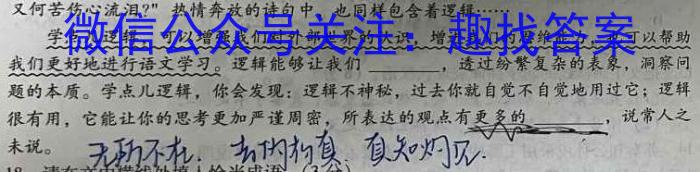 又何苦伤心流泪?”热情奔放的诗句中,也同样包含着逻辑……
微信公众号关注:趣找答案
学点儿逻辑,可以增强我们对外部世界的认识,增
可以帮助
我们更好地进行语文学习。逻辑能够让我们________,透过纷繁复杂的表象,洞察问
题的本质。学点儿逻辑,你会发现:逻辑不神秘,过去你就自觉不自觉地用过它;逻辑
很有用,它能让你的思考更加严谨周密,所表达的观点有更多的________,说常人之
未说。 无所不在. 去伪存真. 真知灼见.
18. 请在文中横线处填入恰当成语。(3分)